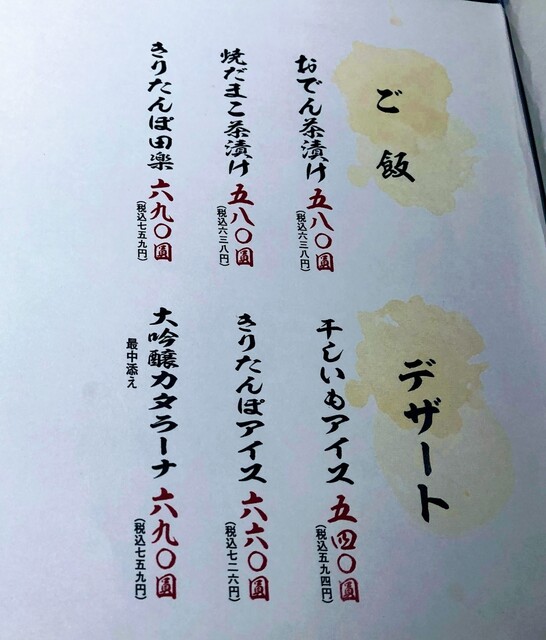 ご飯
おでん茶漬け 五八〇圓
(税込六三八円)
焼だまこ茶漬け 五八〇圓
(税込六三八円)
きりたんぽ田楽 六九〇圓
(税込七五九円)
デザート
干しいもアイス 五四〇圓
(税込五九四円)
きりたんぽアイス 六六〇圓
(税込七二六円)
大吟醸カタラーナ 六九〇圓
(税込七五九円)
最中添え